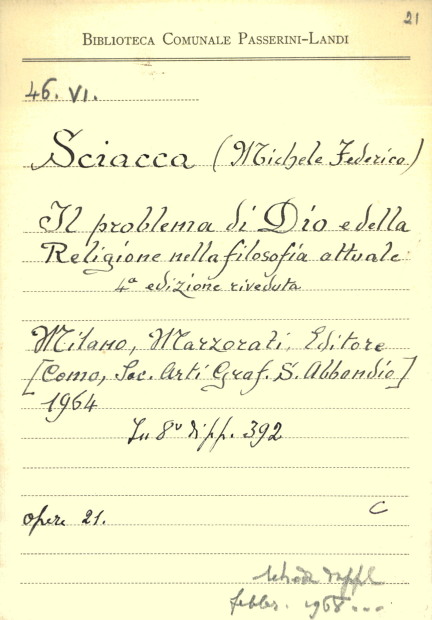 21
BIBLIOTECA COMUNALE PASSERINI-LANDI
46. VI.
Sciacca (Michele Federico)
Il problema di Dio e della
Religione nella filosofia attuale
4ª edizione riveduta
Milano, Marzorati, Editore
[Como, Soc. Arti Graf. S. Abbondio]
1964
In 8º di pp. 392
C
opere 21.
scheda
febbr. 1968